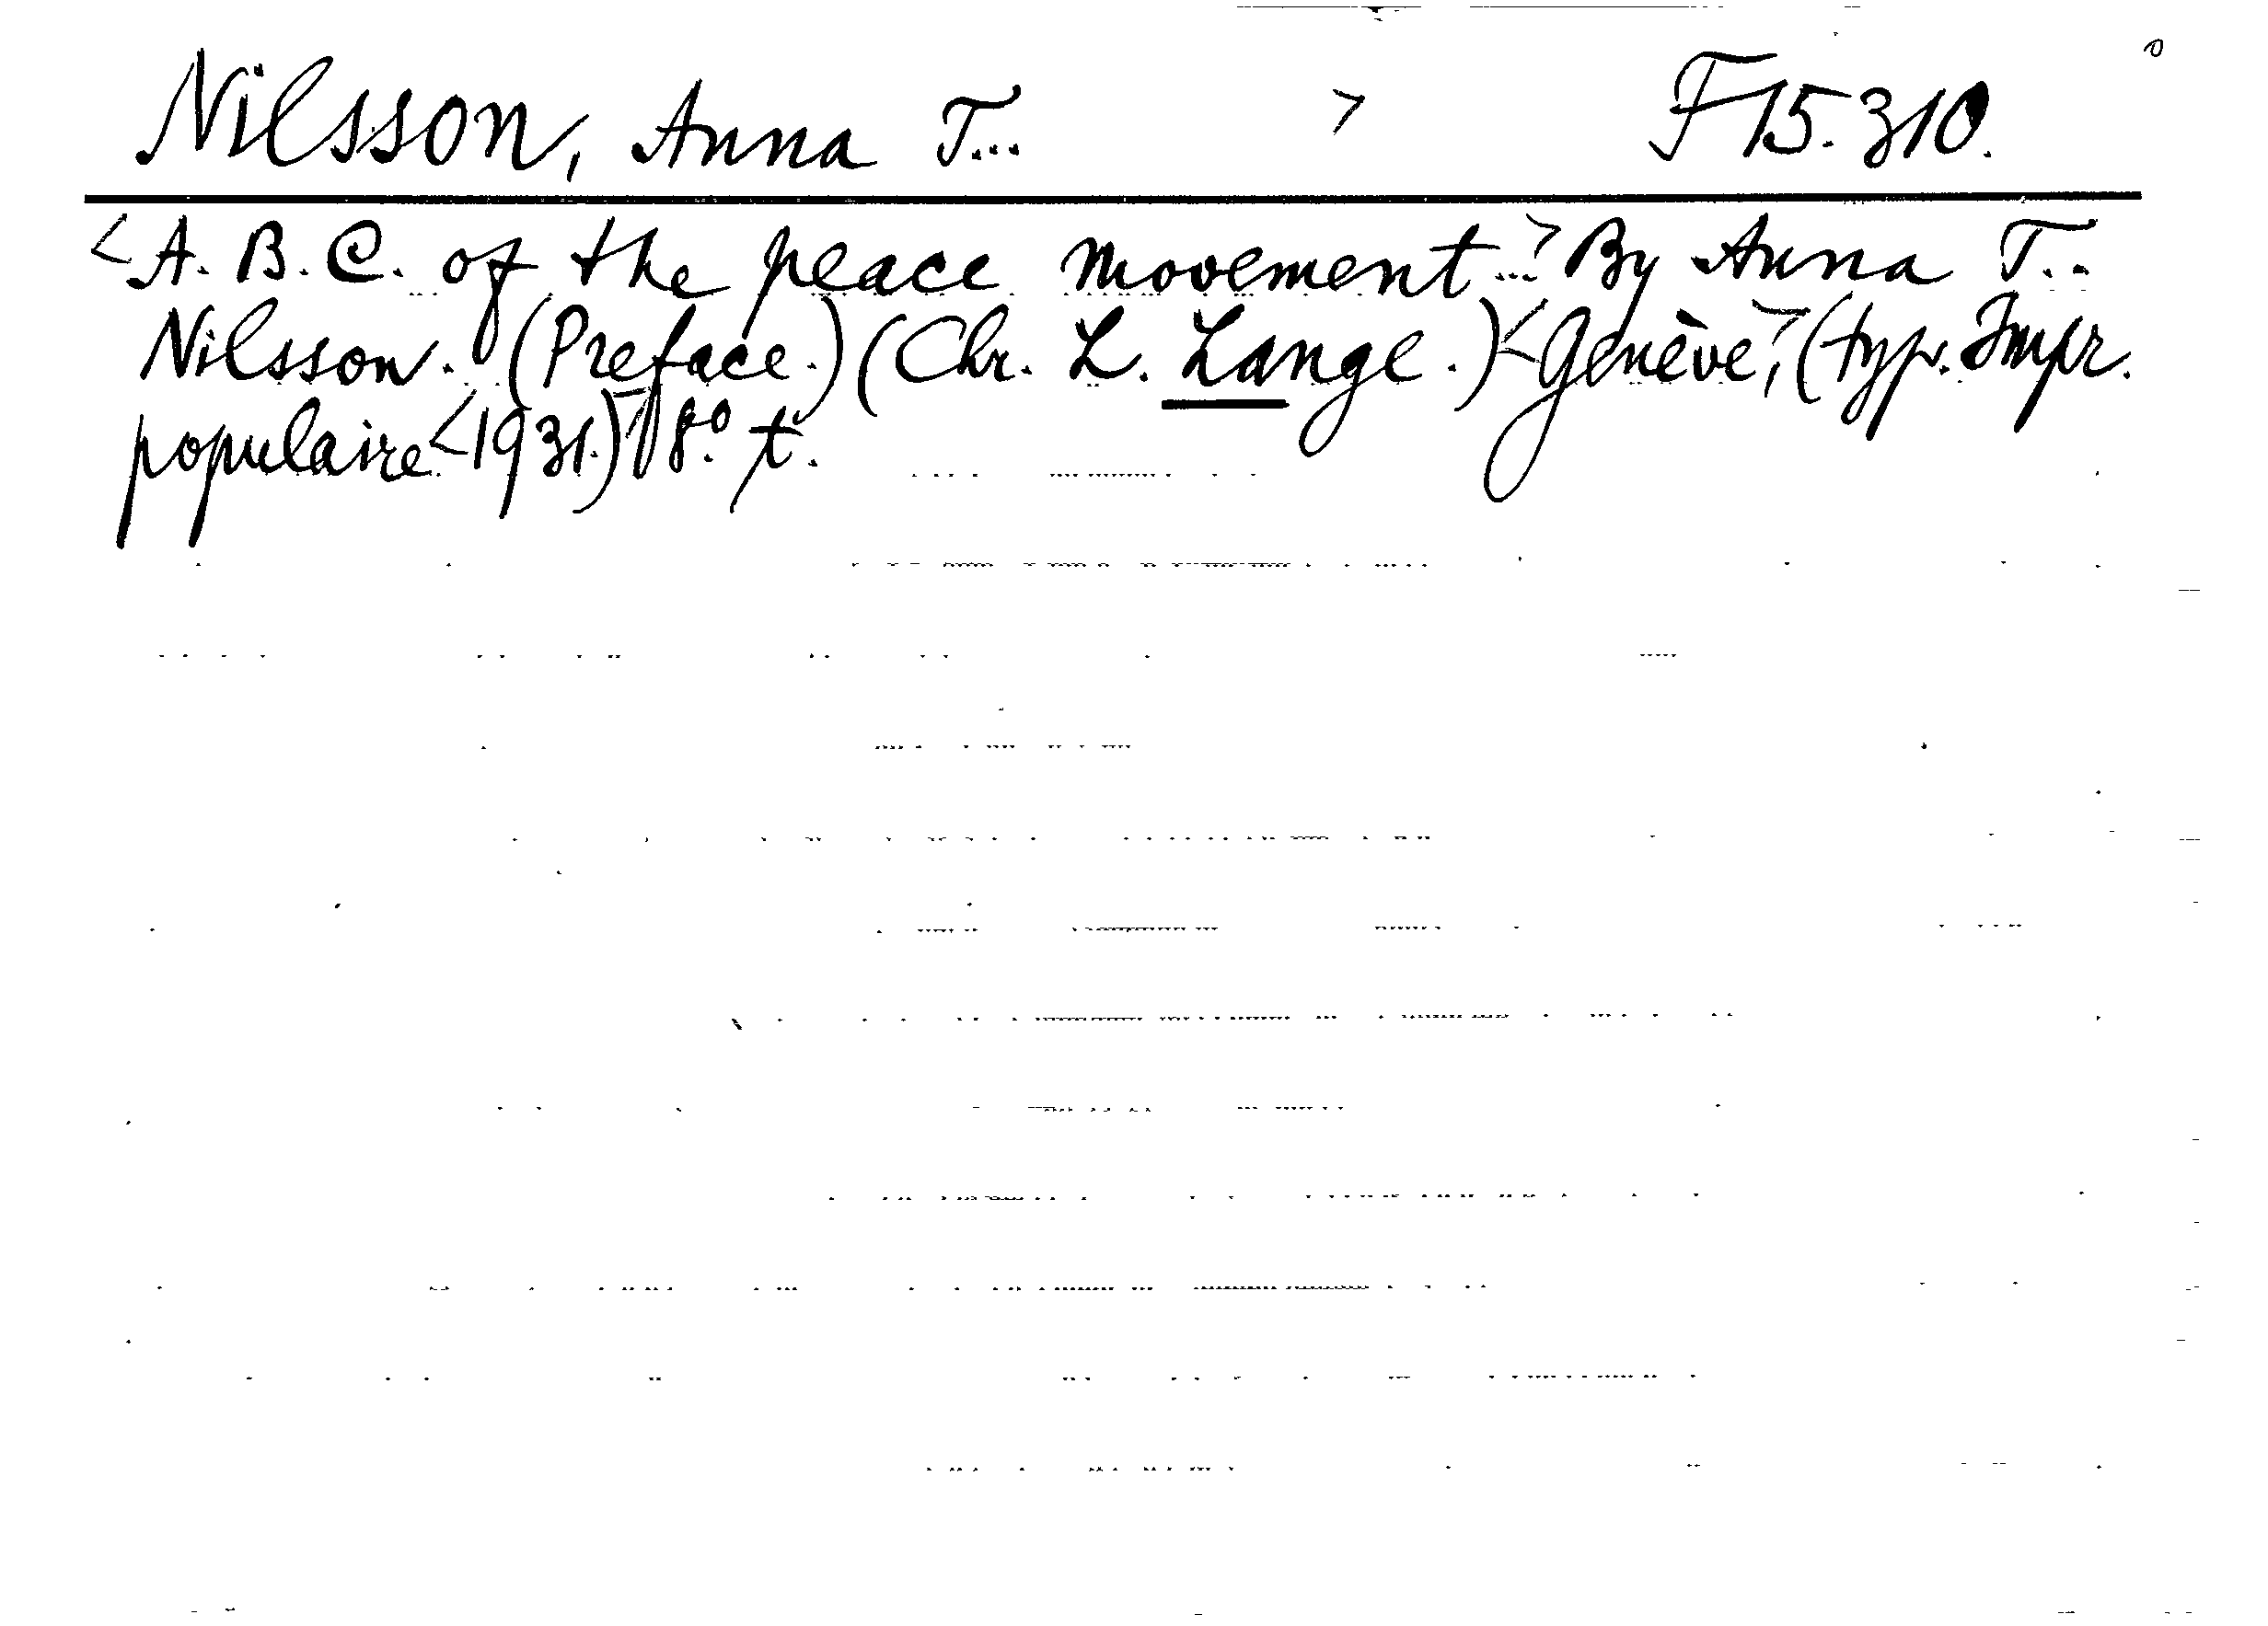 Nilsson, Anna T... > F 15.310.
<A. B. C. of the peace movement...> By Anna T..
Nilsson. (Preface.) (Chr. L. Lange.) <Genève>, (typ. Impr.
populaire <1931.)> 8.° t.